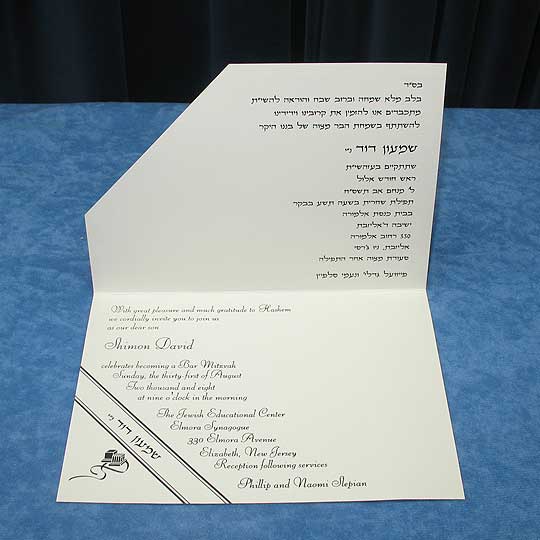 בס״ד
בלב מלא שמחה וברוב שבח והודאה להשי״ת
מתכבדים אנו להזמין את קרובינו וידידינו
להשתתף בשמחת הבר מצוה של בננו היקר
שמעון דוד ני״
שתתקיים בעזהשי״ת
ראש חודש אלול
ל׳ מנחם אב תשס״ח
תפילת שחרית בשעה תשע בבקר
בבית כנסת אלמורה
ישיבה ד׳אליזבת
330 רחוב אלמורה
אליזבת, ניו ג׳רסי
סעודת מצוה אחר התפילה
פייוועל גדלי׳ ונעמי סלפיין
With great pleasure and much gratitude to Hashem
we cordially invite you to join us
as our dear son
Shimon David
celebrates becoming a Bar Mitzvah
Sunday, the thirty-first of August
Two thousand and eight
at nine o'clock in the morning
The Jewish Educational Center
Elmora Synagogue
330 Elmora Avenue
Elizabeth, New Jersey
Reception following services
Phillip and Naomi Slepian
שמעון דוד ני״